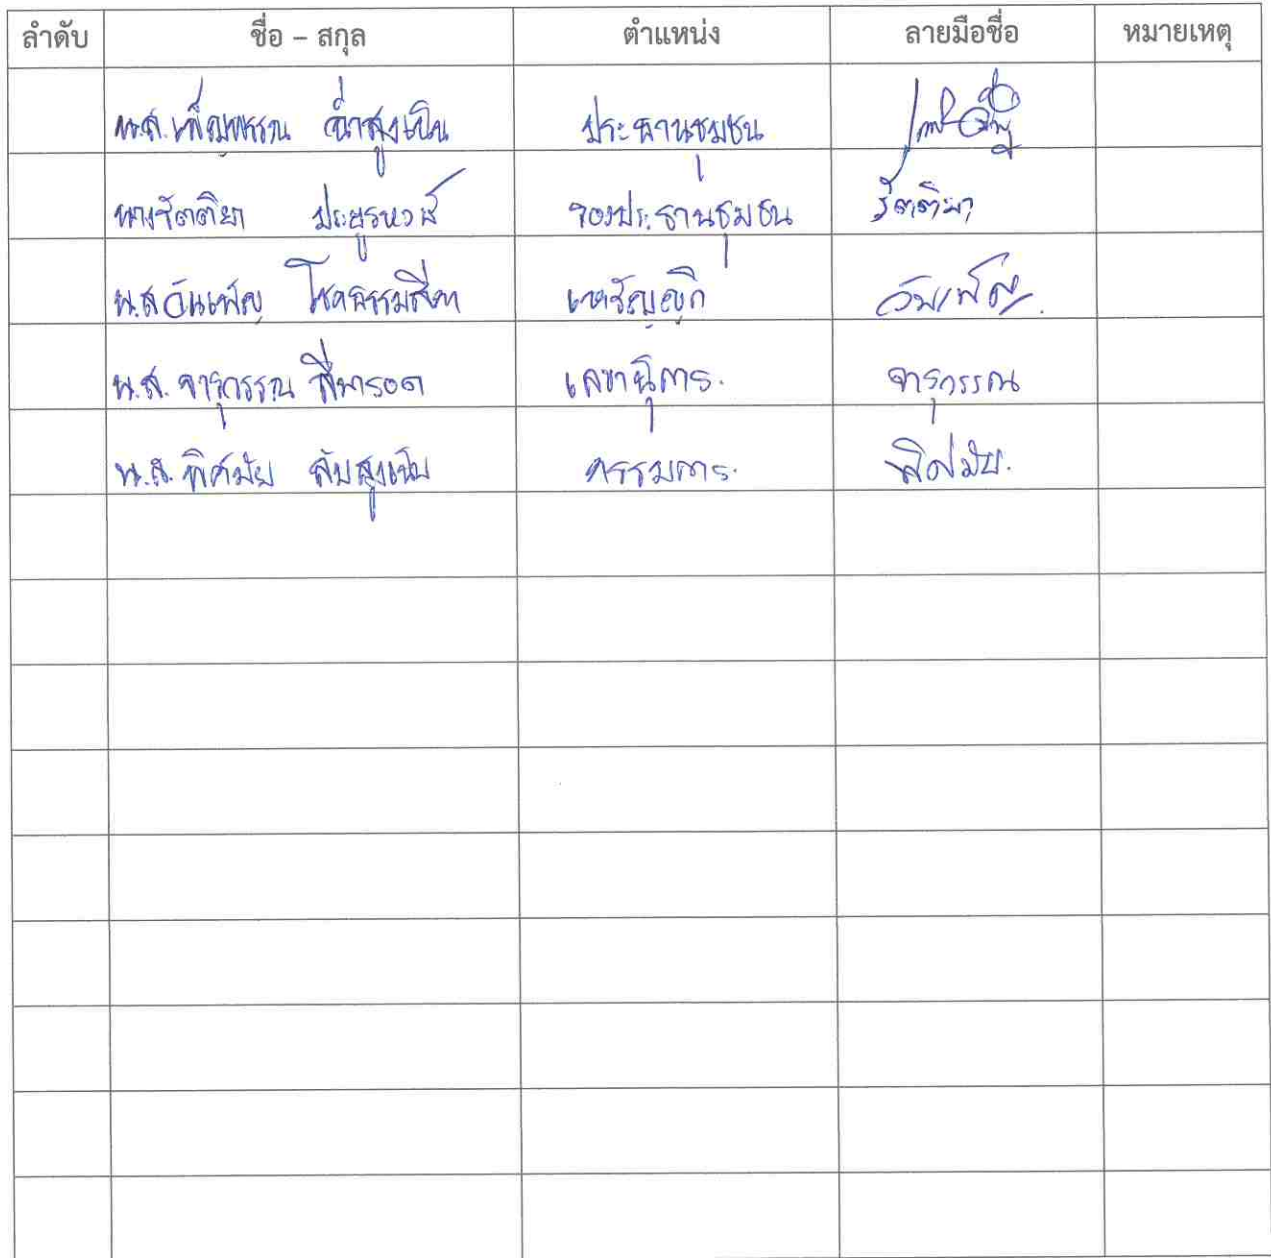 ลำดับ ชื่อ – สกุล ตำแหน่ง ลายมือชื่อ หมายเหตุ
น.ส. เพ็ญพรรณ ฉ่ำสูงเนิน ประธานชุมชน
นางรัตติยา ประยูรหงษ์ รองประธานชุมชน รัตติยา
น.ส วันเพ็ญ เหรัญญิก วันเพ็ญ
น.ส. จารุวรรณ เลขานุการ. จารุวรรณ
น.ส. พิศมัย สูงเนิน กรรมการ. พิศมัย.